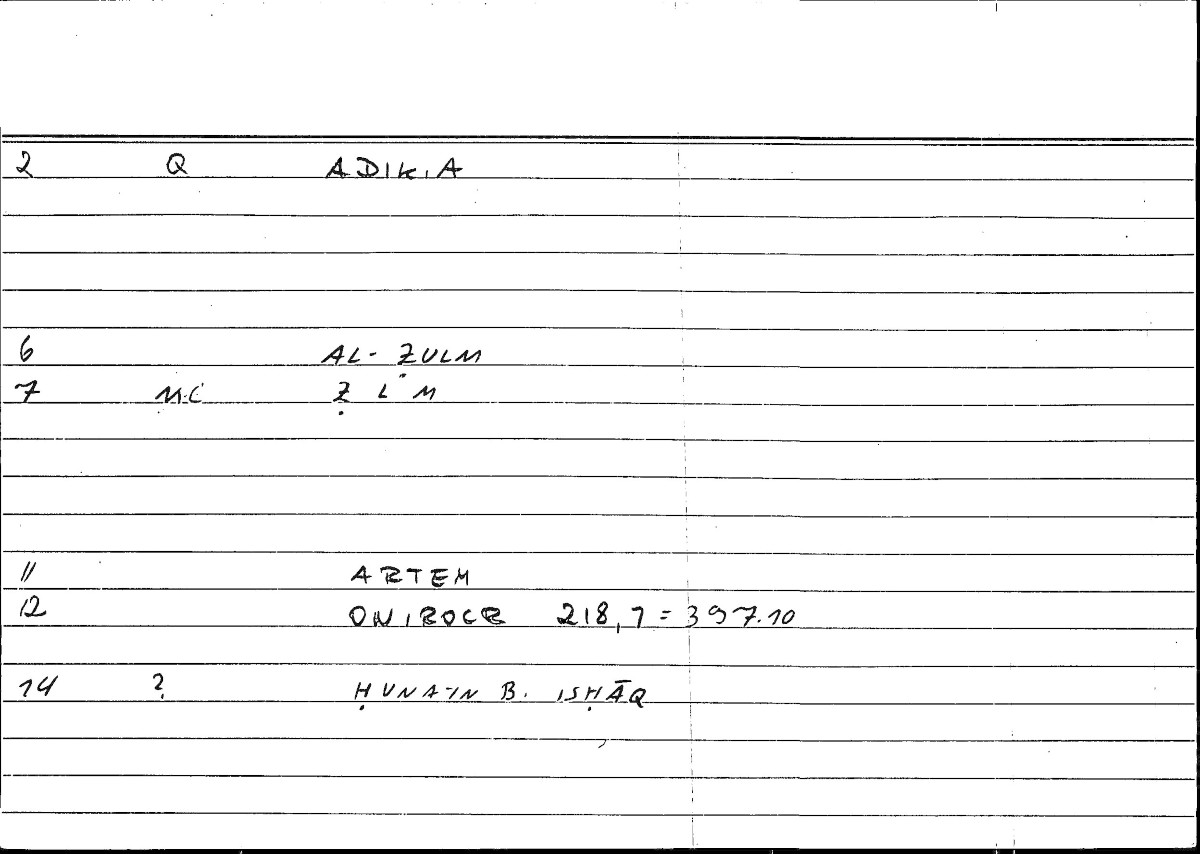 2 Q ADIKIA
6 AL-ẒULM
7 MC Ẓ L M
11 ARTEM
12 ONIROCR 218,7 = 397.10
14 ? ḤUNAIN B. ISḤĀQ